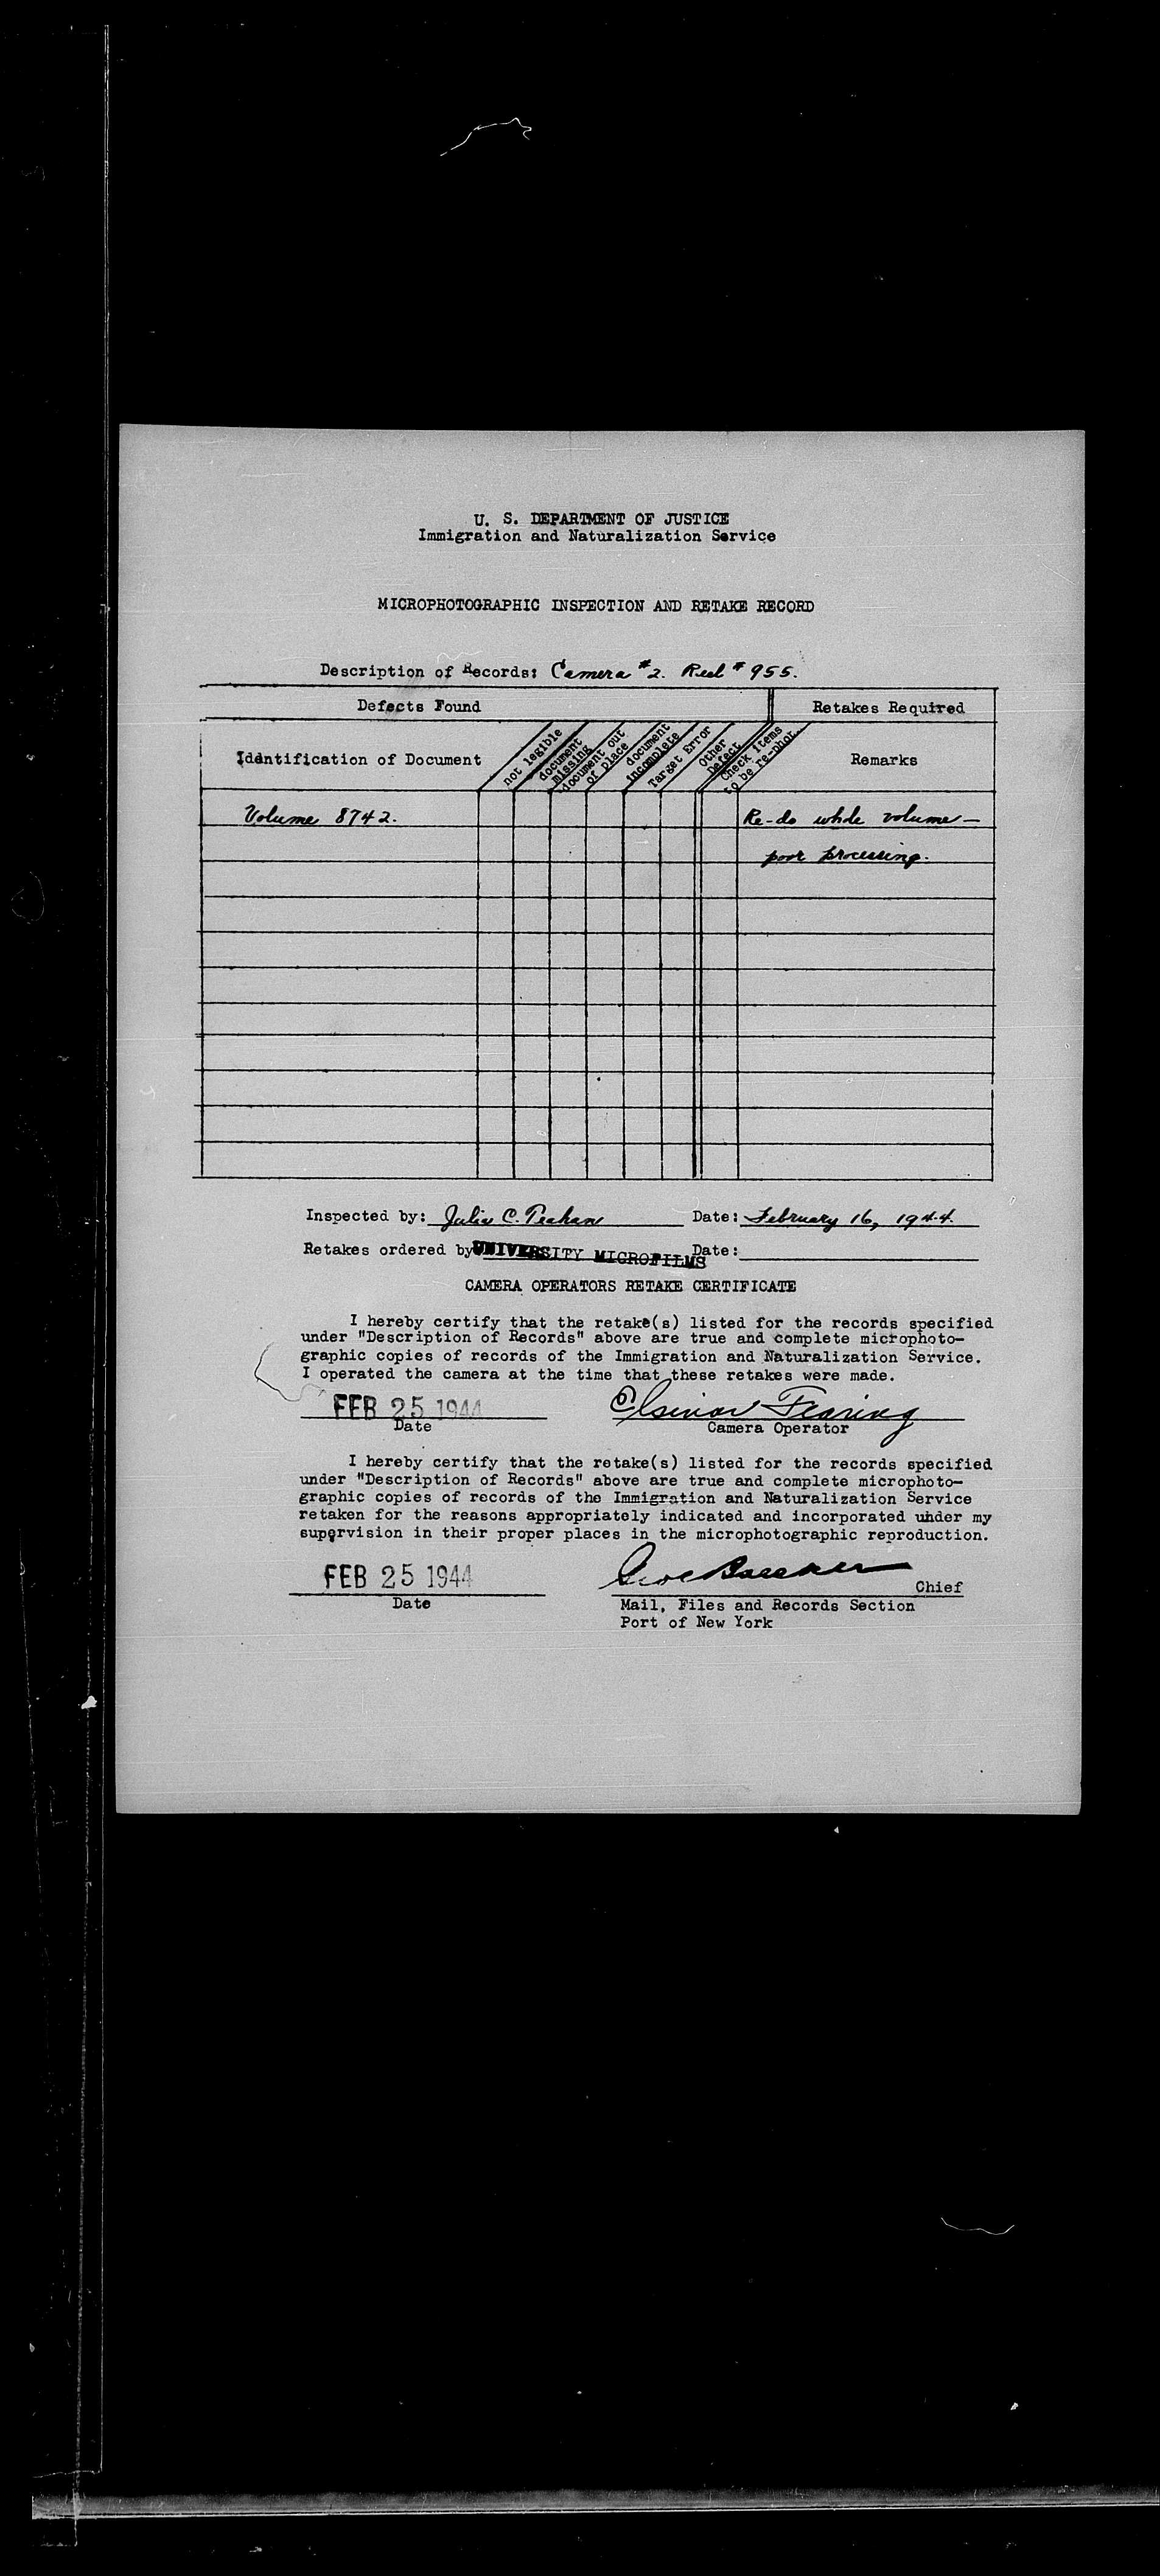 U. S. DEPARTMENT OF JUSTICE
Immigration and Naturalization Service
MICROPHOTOGRAPHIC INSPECTION AND RETAKE RECORD
Description of Records: Camera #2. Reel #955.
Defects Found
Retakes Required
Identification of Document
not legible
document missing
document out of place
document incomplete
Target Error
Other Defect
Check items to be re-phot.
Remarks
Volume 8742.
Re-do whole volume—
poor processing.
Inspected by: Julia C. Date: February 16, 1944.
Retakes ordered by UNIVERSITY MICROFILMS Date:
CAMERA OPERATORS RETAKE CERTIFICATE
I hereby certify that the retake(s) listed for the records specified
under "Description of Records" above are true and complete microphoto-
graphic copies of records of the Immigration and Naturalization Service.
I operated the camera at the time that these retakes were made.
FEB 25 1944
Date
Camera Operator
I hereby certify that the retake(s) listed for the records specified
under "Description of Records" above are true and complete microphoto-
graphic copies of records of the Immigration and Naturalization Service
retaken for the reasons appropriately indicated and incorporated under my
supervision in their proper places in the microphotographic reproduction.
FEB 25 1944
Chief
Date
Mail, Files and Records Section
Port of New York